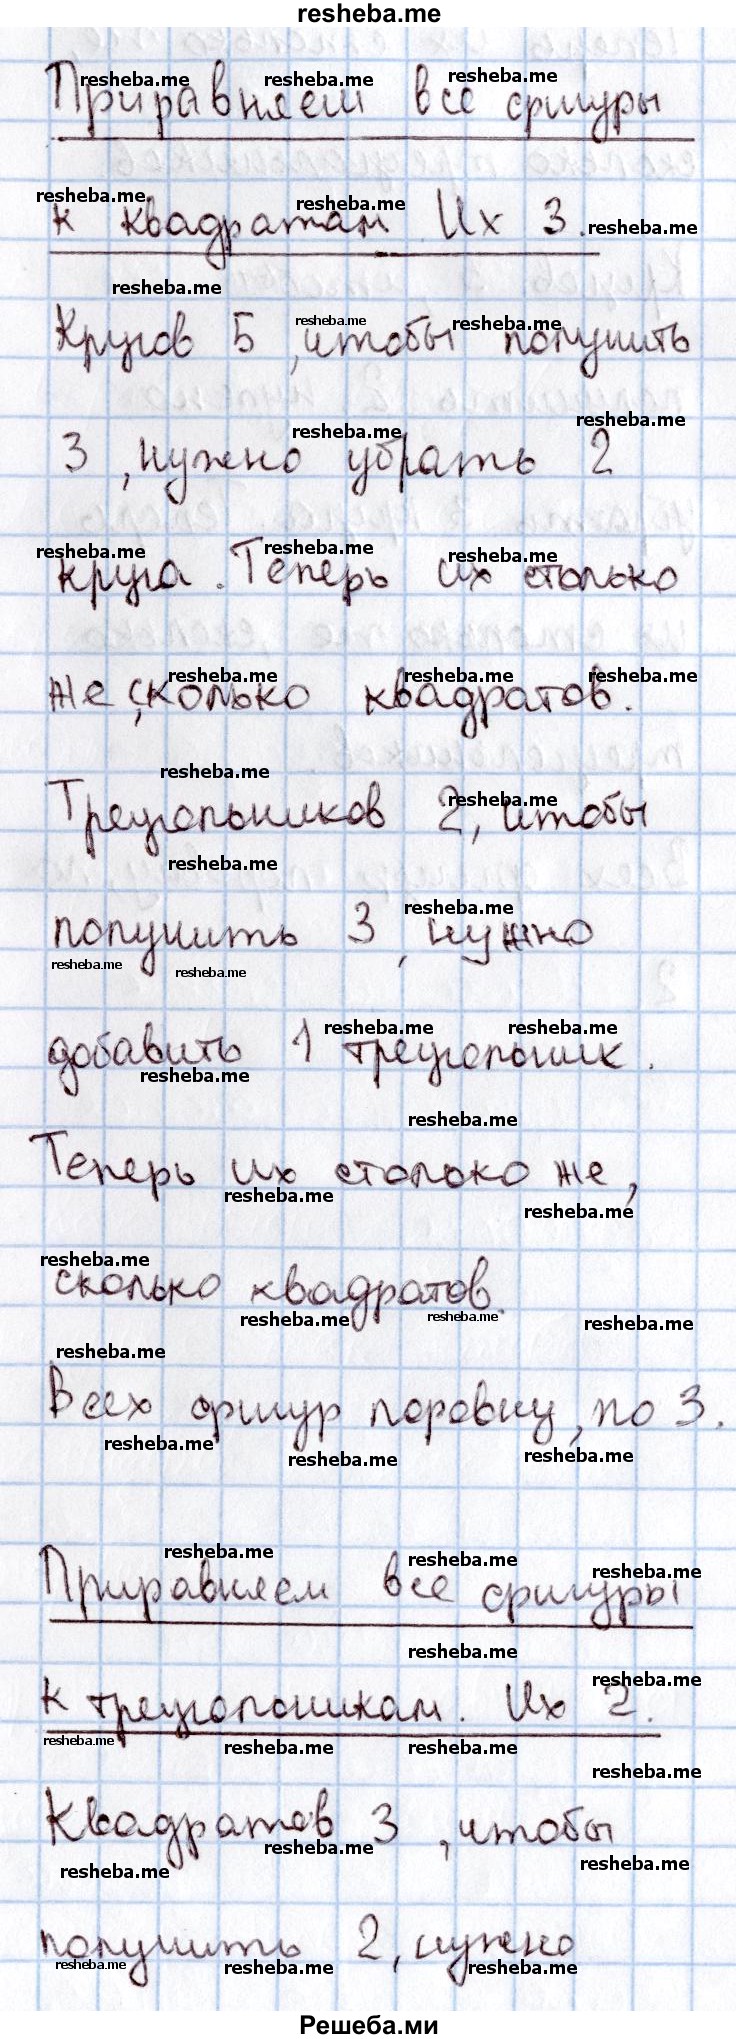 resheba.me
Приравняем все фигуры
к квадратам Их 3.
Кругов 5 ,чтобы получить
3 ,нужно убрать 2
круга. Теперь их столько
же,сколько квадратов.
Треугольников 2, чтобы
получить 3, нужно
добавить 1 треугольник.
Теперь их столько же,
сколько квадратов.
Всех фигур поровну, по 3.
Приравняем все фигуры
к треугольникам. Их 2.
Квадратов 3 ,чтобы
получить 2, нужно
Решеба.ми